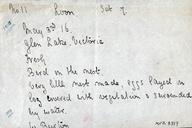 No 11 Swan Set 7.
May 3rd 16.
Glen Lake, Victoria
Fresh
Bird on the nest.
Very little nest made eggs layed in
bog covered with vegetation & surrounded
by water.
W. Burton